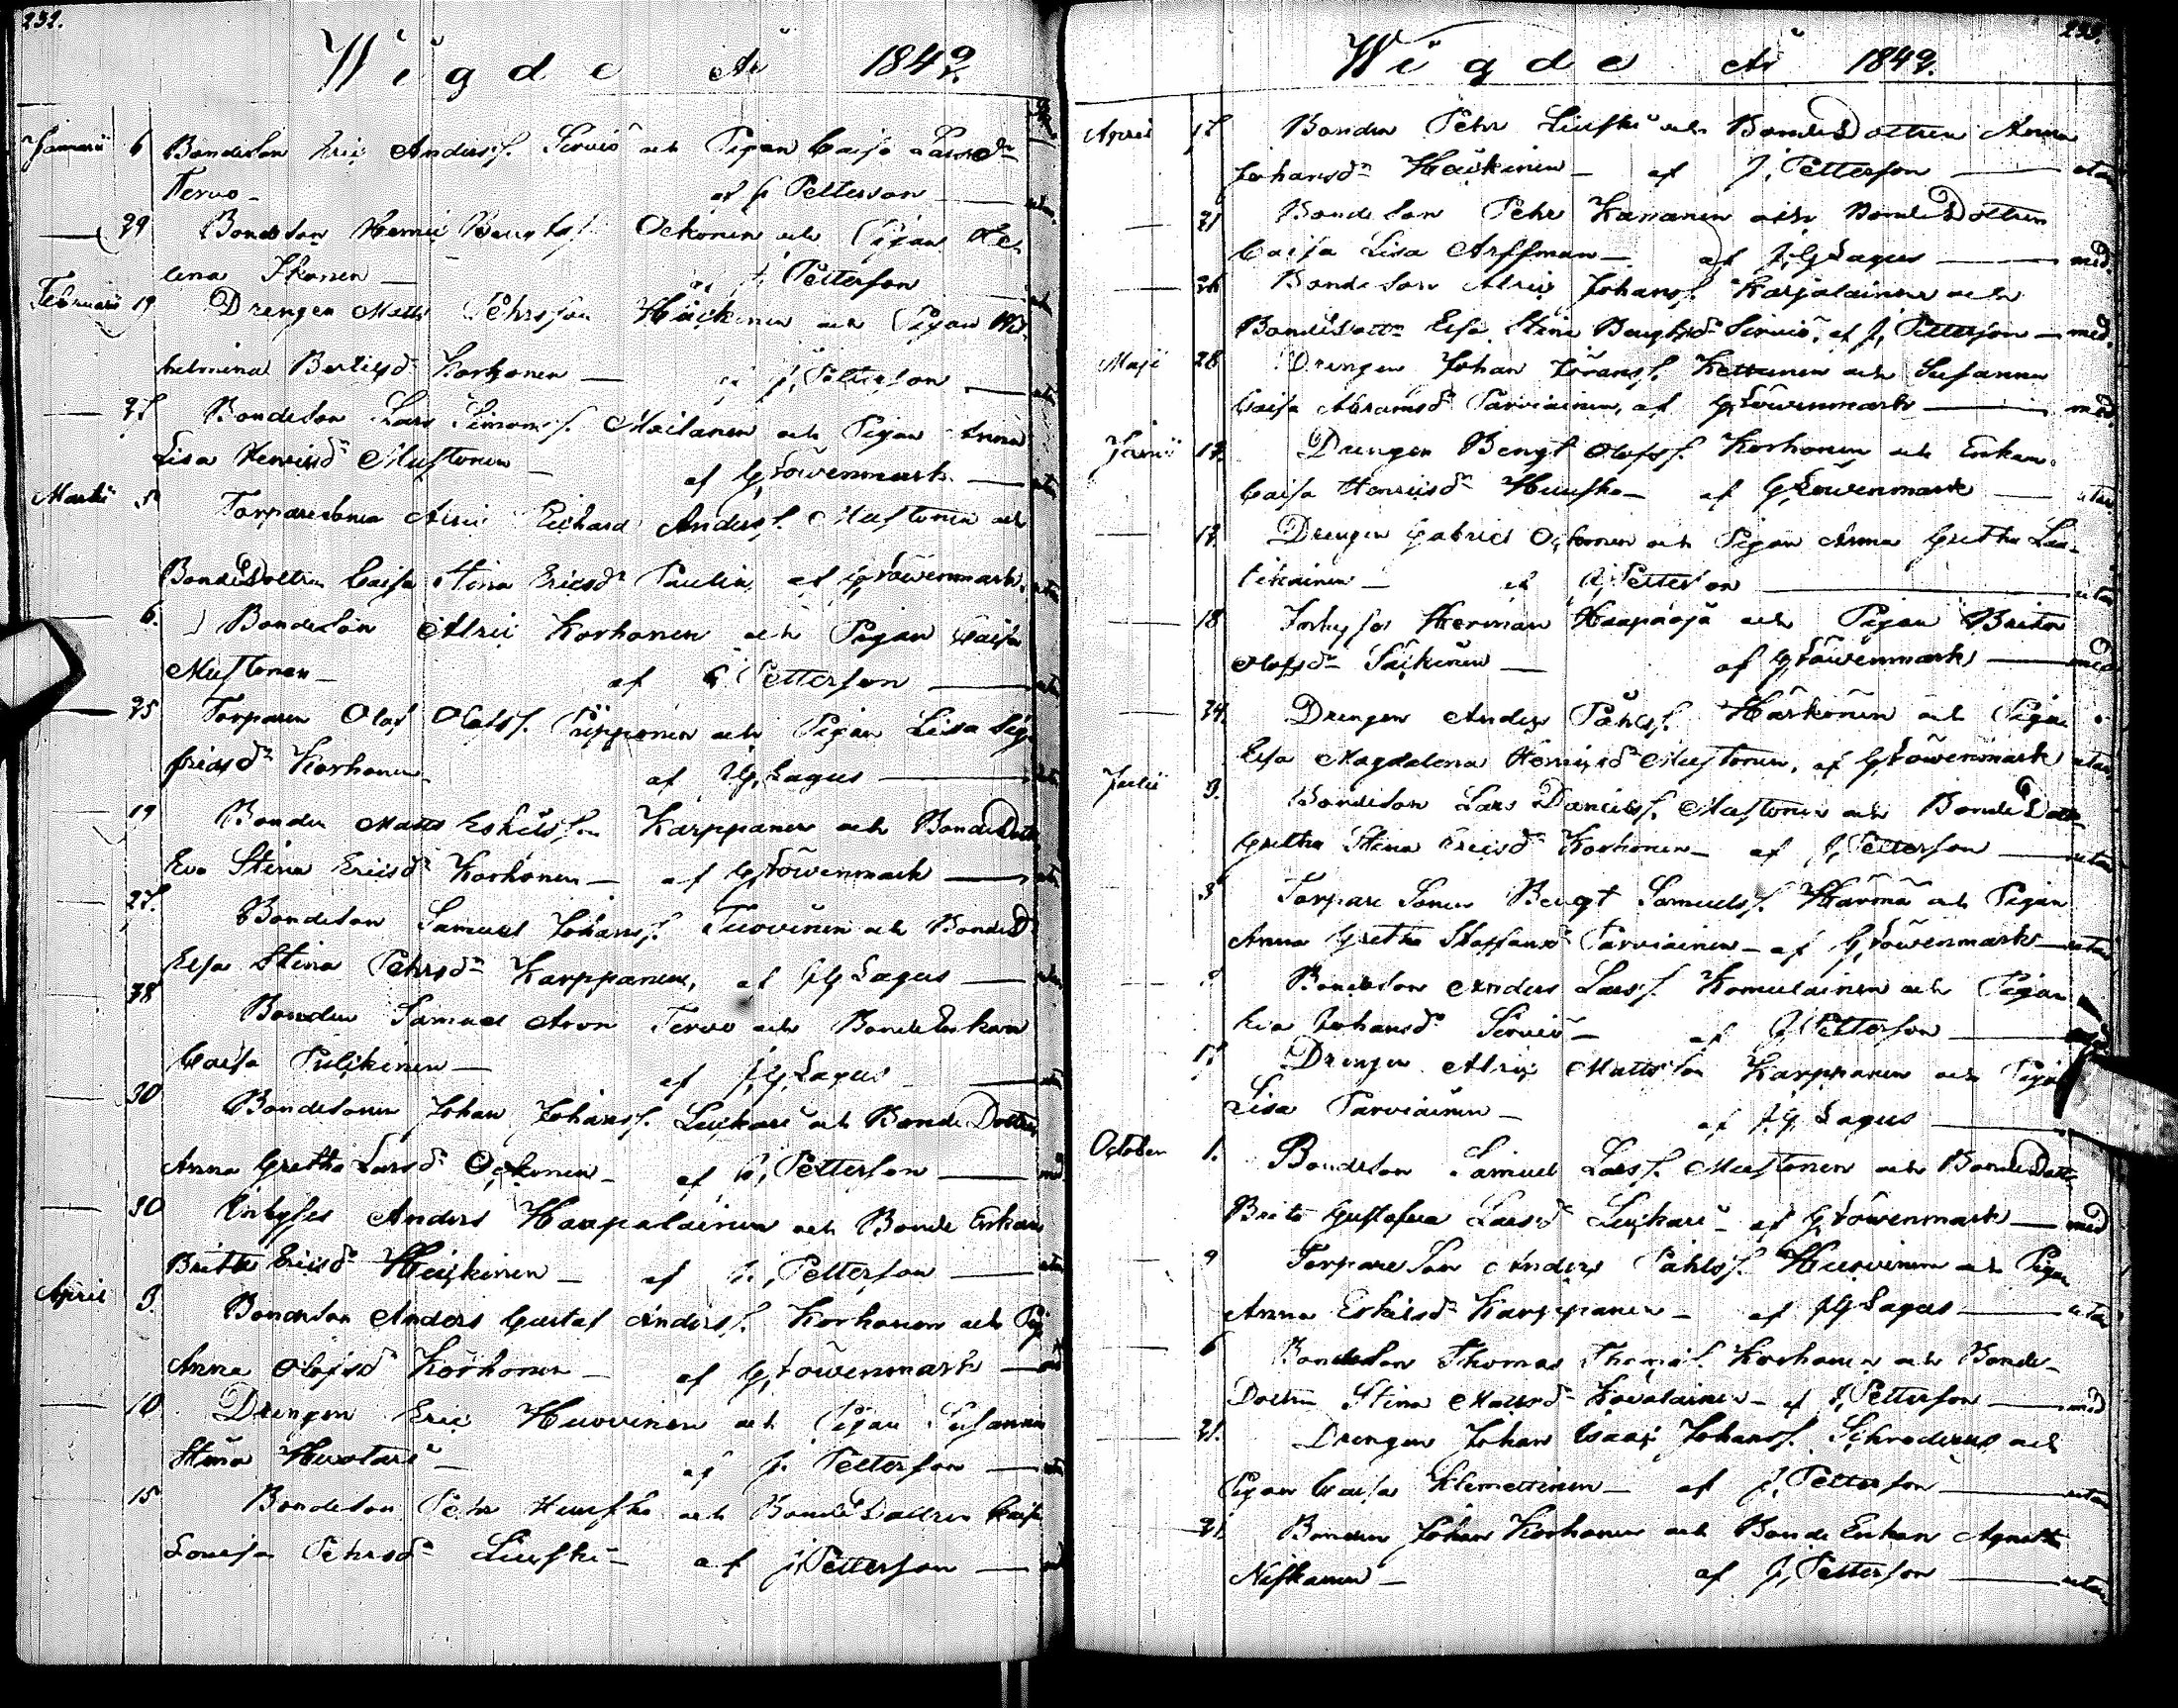 232.
Wigde År 1849.
Januarii 6 Bondeson Eric Anderss. Servio och Pigan Caisa Larsdr
Tervo — af J. Petterson — utan
29 Bondeson Henric Bengtss. Ockonen och Pigan He-
lena Ikonen — af J. Petterson — utan
Februarii 19 Drengen Matts Pehrsson Häikinen och Pigan Wil-
helmina Bertilsdr Korhonen — af J. Petterson — utan
27. Bondeson Lars Simonss. Moilanen och Pigan Anna
Lisa Henricsdr Mustonen — af G. Löwenmark — utan
Martii 5 Torparesonen Alric Richard Anderss. Mustonen och
BondeDottren Caisa Stina Ericsdr Paulin, af G. Löwenmark. utan
6. Bondeson Alric Korhonen och Pigan Caisa
Mustonen — af Petterson — utan
25 Torparen Olof Olofss. Piipponen och Pigan Lisa Sig-
fridsdr Korhonen — af J.G. Lagus — utan
19 Bonden Matts Eskilsson Karppanen och BondeDottr
Eva Stina Ericsdr Korhonen — af G. Löwenmark — utan
27. Bondeson Samuel Johanss. Tuovinen och BondeD
Elsa Stina Pehrsdr Karppanen, af J.G. Lagus — utan
28 Bonden Samuel Aron Tervo och BondeEnkan
Caisa Pulkinen — af J.G. Lagus — utan
30 Bondesonen Johan Johanss. Leskari och BondeDottren
Anna Gretha Larsdr Ockonen — af Petterson — med
30 Enkyses Anders Haapalainen och Bonde Enkan
Britha Ericsdr Heiskinen — af Petterson — utan
April 3. Bondeson Anders Gustaf Anderss. Korhonen och Pig
Anna Olofsdr Korhonen — af G. Löwenmark — med
10 Drengen Eric Huovinen och Pigan Susanna
Stina Huotari — af J. Petterson — utan
15 Bondeson Pehr Husko och BondeDottren Caisa
Lovisa Pehrsdr Liuski — af J. Petterson — med
233.
Wigde År 1849.
April 17 Bonden Pehr Liuski och BondeDottren Anna
Johansdr Heikinen — af J. Petterson — utan
21 Bondeson Pehr Kananen och BondeDottren
Caisa Lisa Arffman — af J.G. Lagus — med
26 Bondeson Alric Johanss. Karjalainen och
BondeDottr Elsa Stina Bengtsdr Servio, af J. Petterson — med.
Maji 28 Drengen Johan Göranss. Kettunen och Susanna
Caisa Abramsdr Parviainen, af G. Löwenmark — med.
Junii 17. Drengen Bengt Olofss. Korhonen och Enkan
Caisa Henricsdr Husko — af G. Löwenmark — utan
17. Drengen Gabriel Ockonen och Pigan Anna Gretha Laa-
tikainen — af J. Petterson — utan
18 Inhyses Herman Haapaoja och Pigan Britha
Olofsdr Säikinen — af G. Löwenmark — med
24. Drengen Anders Påhlss. Härkönen och Pigan
Elsa Magdalena Henricsdr Mustonen, af G. Löwenmark utan
Julii 3. Bondeson Lars Danielss. Mustonen och BondeDottr
Gretha Stina Ericsdr Korhonen — af J. Petterson — utan
3 Torpare Sonen Bengt Samuelss. Härmä och Pigan
Anna Gretha Staffansdr Parviainen — af G. Löwenmark — utan
Bondeson Anders Larss. Komulainen och Pigan
Eva Johansdr Servio — af J. Petterson —
Drengen Alric Mattsson Karppanen och Pigan
Lisa Parviainen — af J.G. Lagus —
October 1. Bondeson Samuel Larss. Mustonen och BondeDottr
Britha Gustafva Larsdr Leskari — af G. Löwenmark — med
Torpare Son Anders Påhlss. Huovinen och Pigan
Anna Eskilsdr Karppanen — af J.G. Lagus — utan
6 Bondeson Thomas Thomass. Korhonen och Bonde-
Dottren Stina Mattsdr Kovalainen — af J. Petterson — med
21. Drengen Johan Isaac Johanss. Schroderus och
Pigan Caisa Klemettinen — af J. Petterson — utan
21. Bonden Johan Korhonen och Bonde Enkan Agnetha
Niskanen — af J. Petterson — utan